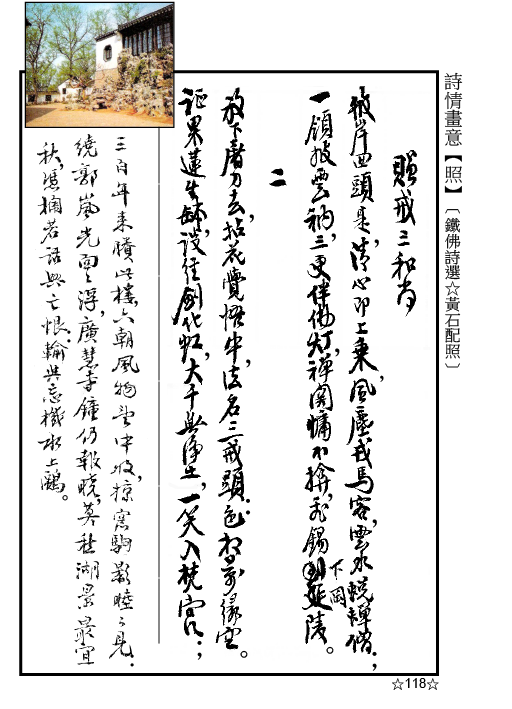 詩情畫意【照】〔鐵佛詩選☆黃石配照〕
贈戒三和尚
彼岸回頭是,清心即上乘,風塵戎馬客,雲水蛻禪僧;
一領披雲衲,三更伴佛灯,禪関慵不掩,飛錫到延陵。
下岡
二
放下屠刀去,拈花覺悟中,法名三戒頭,色相萬緣空。
証果蓮生缽,談經劍化虹,大千無淨土,一笑入梵宮;
三百年來賸此樓,六朝風物望中收,掠窗駒影見:
繞郭嵐光面面浮,廣慧寺鐘仍報曉,莫愁湖景最宜
秋,憑欄若話興亡恨,輸與忘機水上鷗。
☆118☆